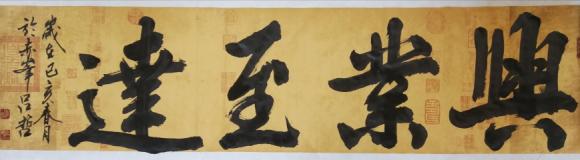 興業至達
歲在己亥春月
於赤峯呂哲